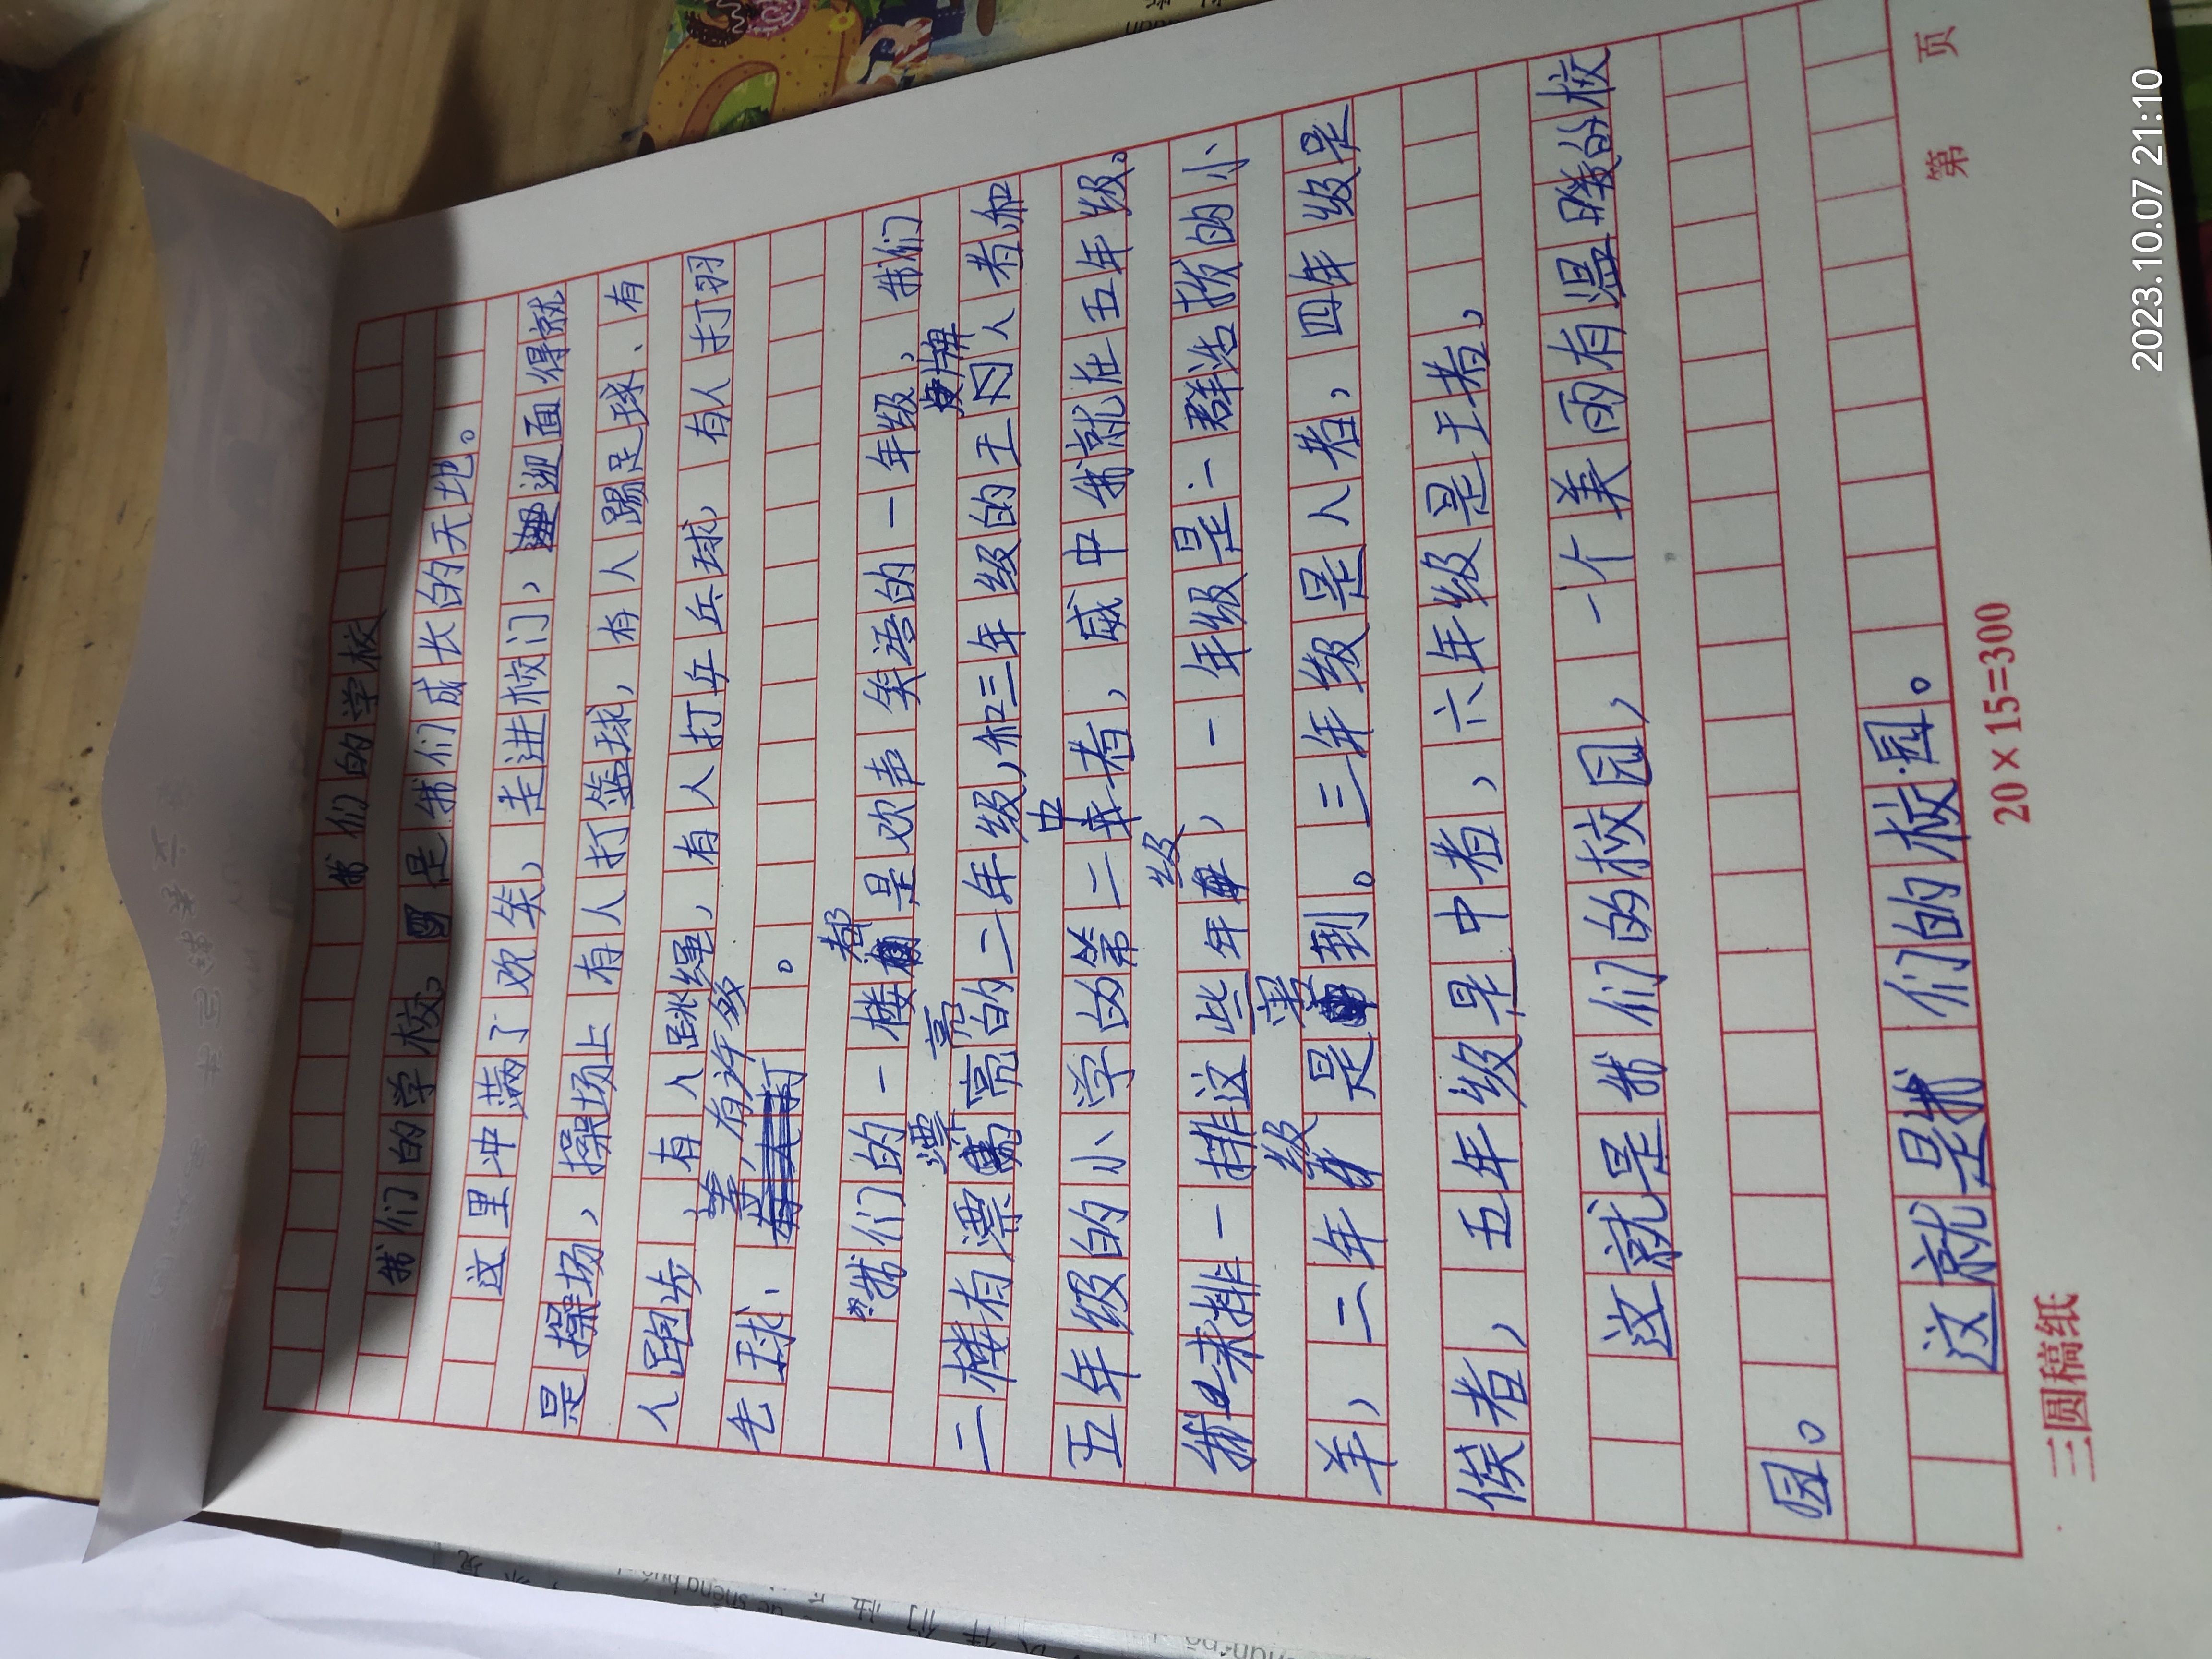 我们的学校
我们的学校。是我们成长的天地。
这里冲满了欢笑，走进校门，迎面得就
是操场，操场上有人打篮球，有人踢足球、有
人跑步，有人跳绳，有人打乒乓球，有人打羽
毛球、等，有许多。
我们的一楼都是欢声笑语的一年级，我们
二楼有漂亮的二年级，和三年级的王人者和
五年级的小学的第二中者，咸中我就在五年级。
我来排一排这些年级，一年级是一群浩的小
羊，二年级是寒到。三年级是人者，四年级是
候者，五年级是中者，六年级是王者。
这就是我们的校园，一个美丽有温暖的校
园。
这就是我们的校园。
三圆稿纸
20×15=300
第 页
2023.10.07 21:10